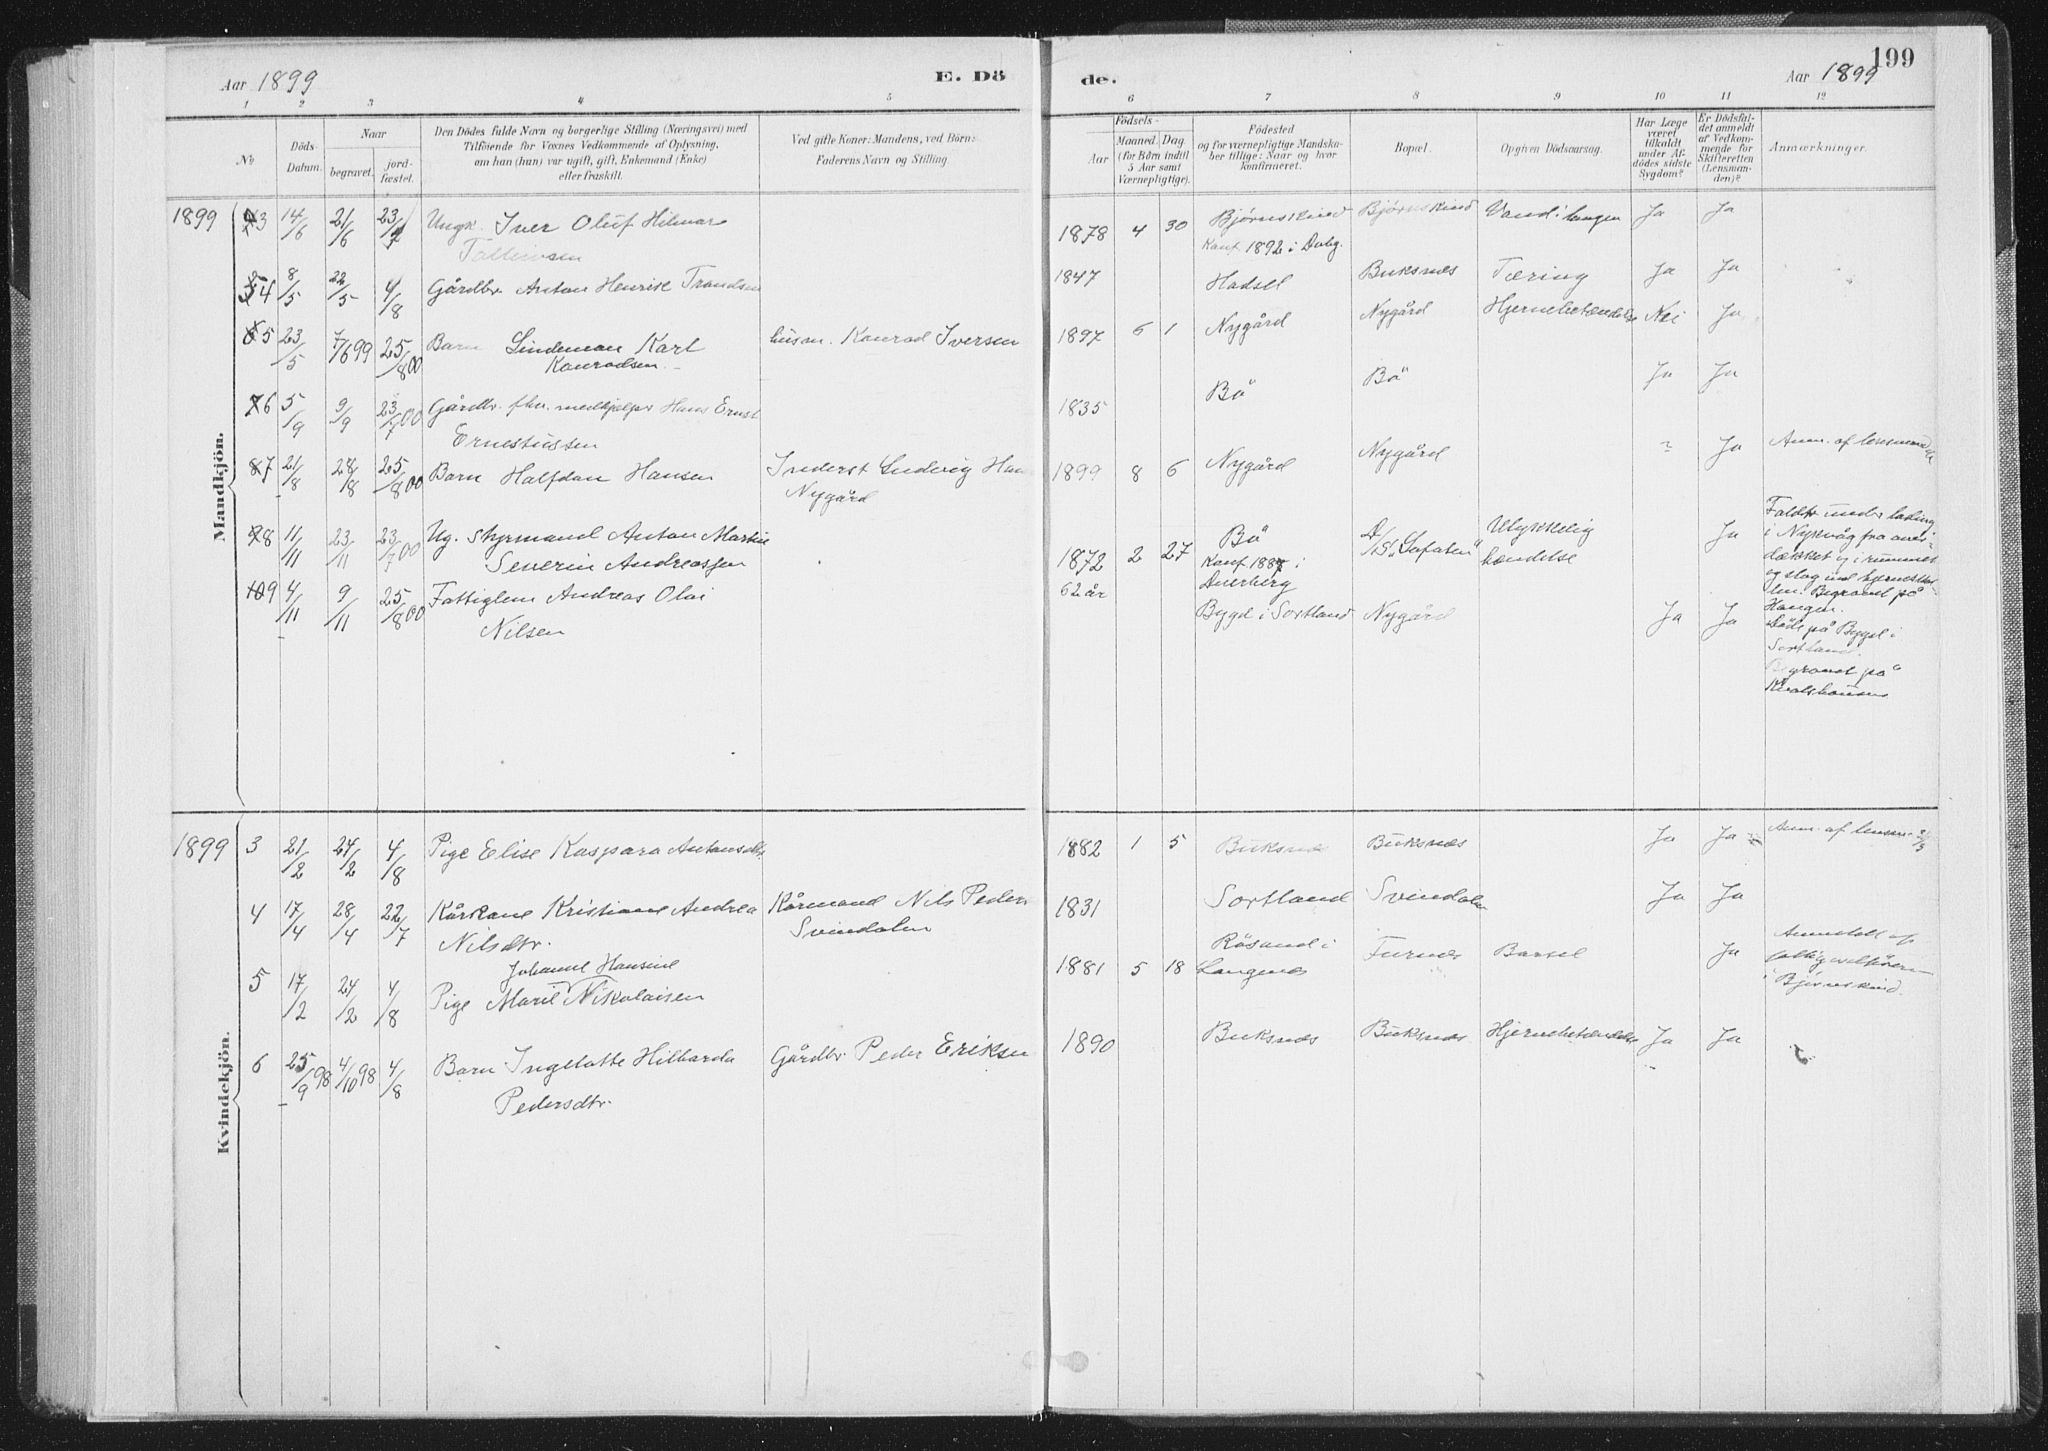 Aar 1899
E. Dö
de.
199
Aar 1899
1 2 3 4 5 6 7 8 9 10 11 12
No
Döds-Datum.
Naar
begravet.
jord-fæstet.
Den Dödes fulde Navn og borgerlige Stilling (Næringsvei) med
Tilföiende for Voxnes Vedkommende af Oplysning,
om han (hun) var ugift, gift, Enkemand (Enke)
eller fraskilt.
Ved gifte Koner: Mandens, ved Börn:
Faderens Navn og Stilling.
Födsels-
Aar
Maaned. Dag
(for Börn indtil
5 Aar samt
Værnepligtige).
Födested
og for værnepligtige Mandska-
ber tillige: Naar og hvor
konfirmeret.
Bopæl.
Opgiven Dödsaarsag.
Har Læge
været
tilkaldt
under Af-
dödes sidste
Sygdom?
Er Dödsfal-
det anmeldt
af Vedkom-
mende for
Skifteretten
(Lensman-
den)?
Anmærkninger.
Mandkjön.
1899 3 14/6 21/6 23/7 Ungk. Iver Oluf Hilmar 1878 4 30 Bjørnskind Bjørnskind Vand i lungen Ja Ja
Konf 1892 i Dvbg.
4 8/5 22/5 4/8 Gårdbr. Anton Henrik Trondsen 1847 Hadsel Buksnes Tæring Ja Ja
5 23/5 7/6 99 25/8 00 Barn Lindeman Karl husm. Konrad Iversen 1897 6 1 Nygård Nygård Hjernebetændelse Nei Ja
Konradsen
6 5/9 9/9 23/7 00 Gårdbr. fhv. medhjelper Hans Ernst 1835 Bø Bø Ja Ja
Ernestussen
7 21/8 28/8 25/8 00 Barn Halfdan Hansen Inderst Ludvig Han 1899 8 6 Nygård Nygård ? Ja Anm. af lensmand
Nygård
8 11/11 23/11 23/7 00 Ug. styrmand Anton Martin 1872 2 27 Bø D/S "Lofoten" Ulykkelig Ja
Severin Andreassen Konf 1887 i hændelse
Dverberg
Faldt under lading
i Nyksvåg fra over-
dækket og i rummet
og slog ind hjerneskal-
len. Begravet på
Haugen.
9 4/11 9/11 25/8 00 Fattiglem Andreas Olai 62 år Bygd i Sortland Nygård Ja Ja
Nilsen
Døde på Bygd i
Sortland.
Begravet på
Kvalshausen
Kvindekjön.
1899 3 21/2 24/2 4/8 Pige Elise Kaspara Antonsdtr. 1882 1 5 Buksnes Buksnes Ja Ja Anm. af lensm. 2/3
4 17/4 28/4 22/7 Kårkone Kristiane Andrea Kårmand Nils Peders 1831 Sortland Svindalen Ja Ja
Nilsdtr. Svindalen
5 17/2 24/2 4/8 Pige Marie Johanne Hansine Nikolaisen 1881 5 18 Råsand i Furnes Barsel Ja
Langenes
Anmeldt af
i Bjørnskind.
6 25/9 98 4/10 98 4/8 Barn Ingelotte Hilharda Gårdbr. Peder Eriksen 1890 Buksnes Buksnes Hjernebetændelse Ja Ja
Pedersdtr.